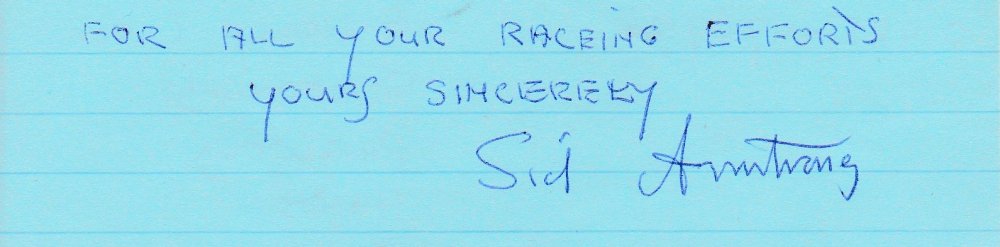 FOR ALL YOUR RACEING EFFORTS
YOURS SINCERELY
Sid Armstrong